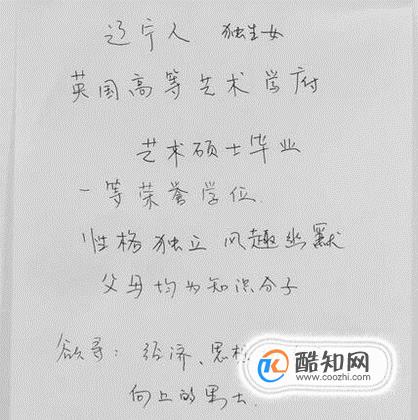 辽宁人 独生女
英国高等艺术学府
艺术硕士毕业
一等荣誉学位.
性格独立 风趣幽默
父母均为知识分子
欲寻：经济、思想
向上的男士.
酷知网
www.coozhi.com